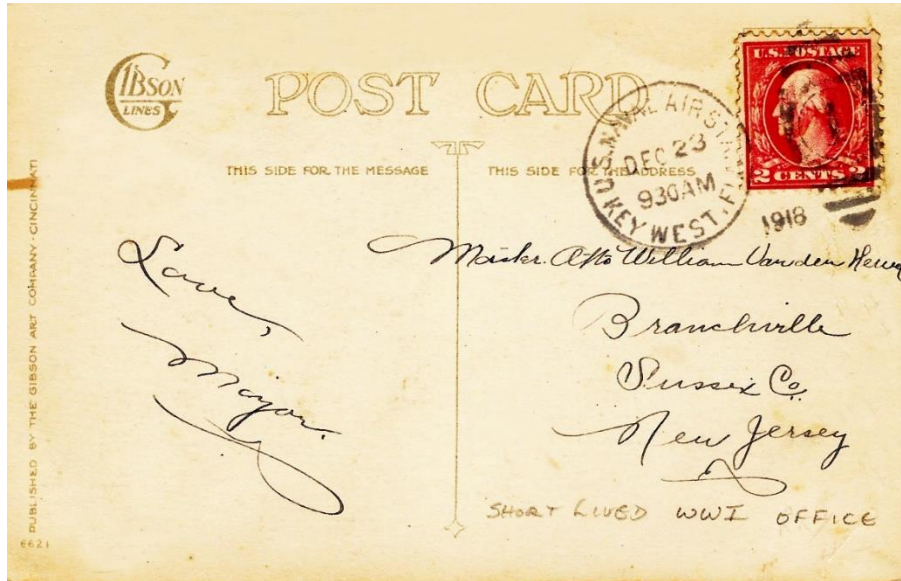 GIBSON
LINES
POST CARD
THIS SIDE FOR THE MESSAGE
THIS SIDE FOR THE ADDRESS
U.S. NAVAL AIR STA.
DEC 23
930AM
KEY WEST, FLA
1918
U.S. POSTAGE
2 CENTS 2
Love,
Major.
Master. Otto William Vanden
Branchville
Sussex Co.
New Jersey
SHORT LIVED WWI OFFICE
PUBLISHED BY THE GIBSON ART COMPANY · CINCINNATI
6621